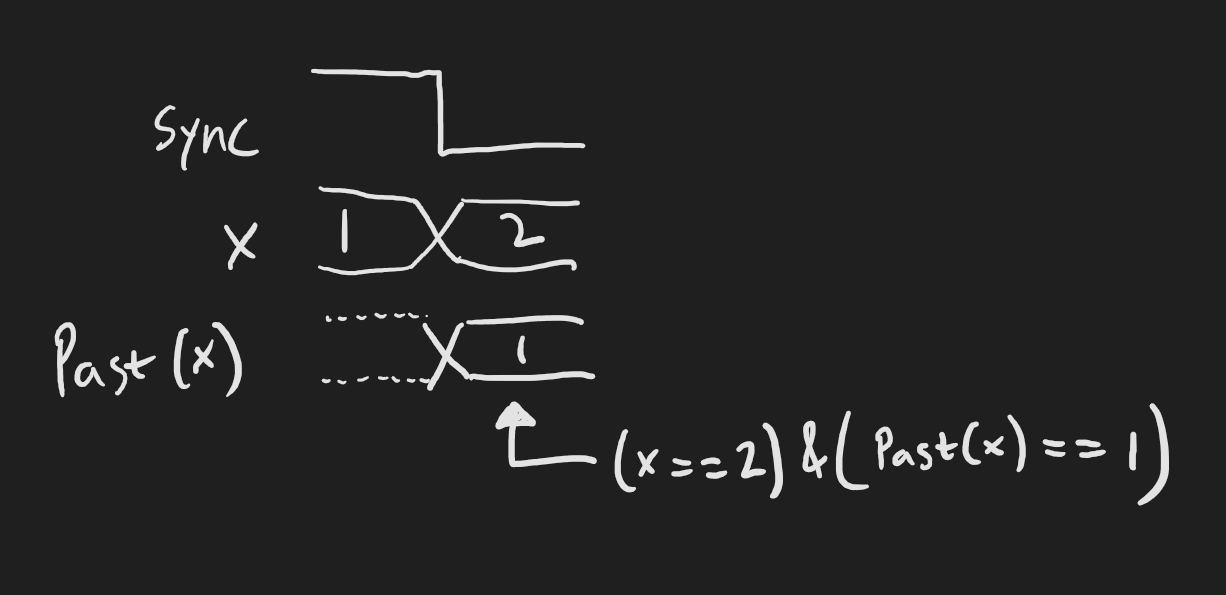 Sync
x 1 2
Past(x) 1
(x==2)&(Past(x)==1)